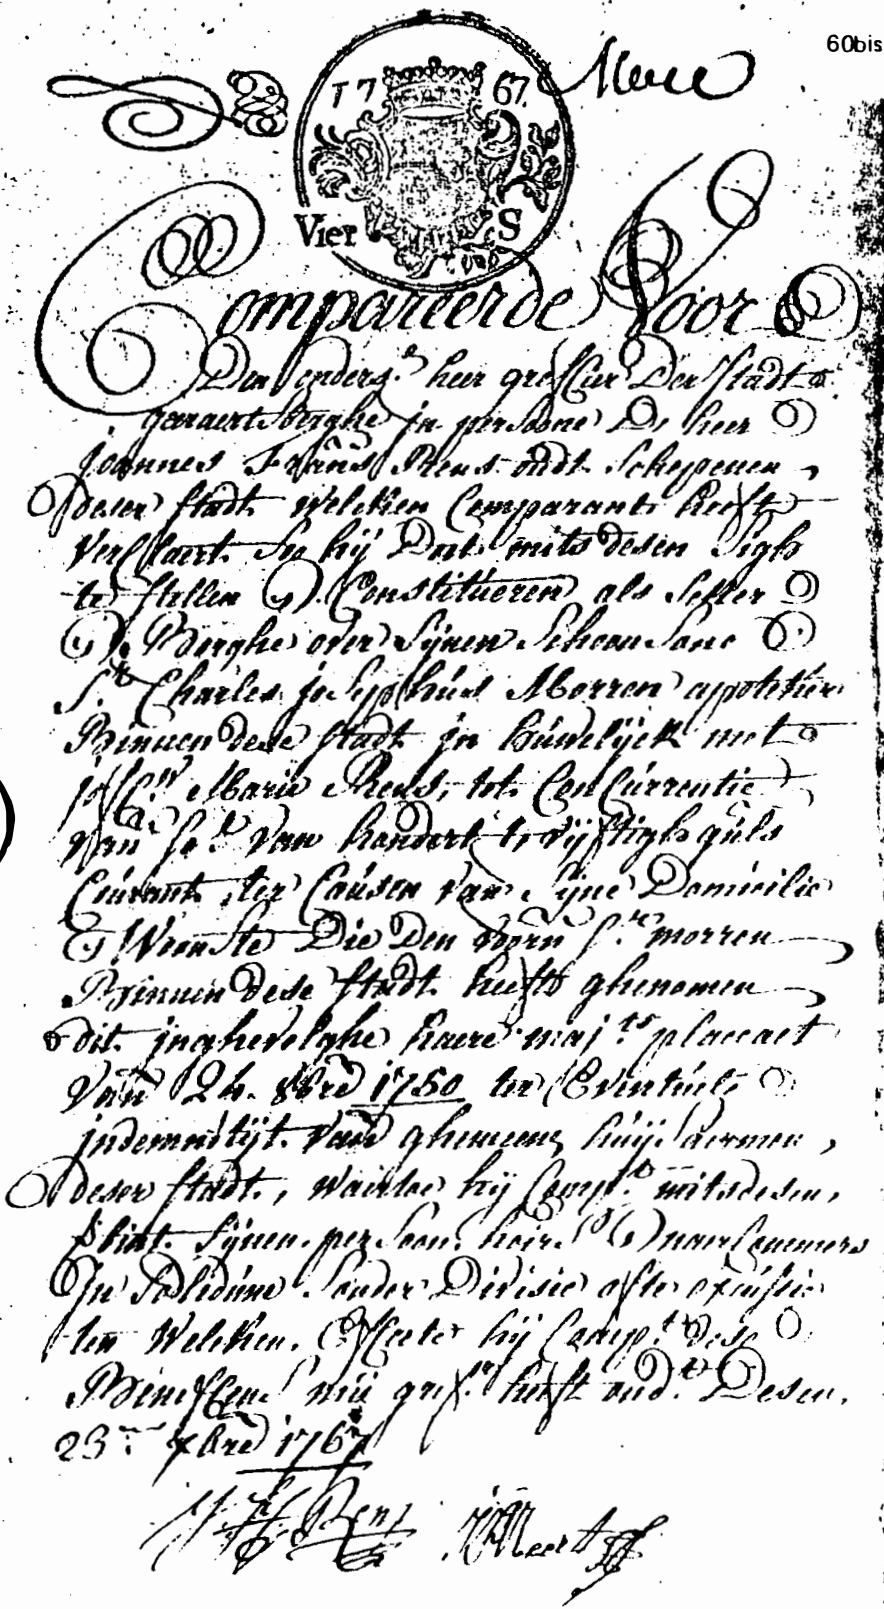 60bis
17 67.
Vier S
Compareerde Voor
Den onders.n heer greffier Der Stadt
geraertsberghe jn persoone De heer
joannes Frans Rens oudt Schepenen
deser stadt Welcken Comparant heeft
Verclaert In hij Doet mits desen Sigh
te stellen Constitueren als Seker
Borghe over Synen Schoon Sone
S.r Charles josephus Morren appoteker
Binnen dese stadt jn húwelijck met
Marie Rens, tot Concúrrentie
van Van hondert vijftigh guls
Coúrant, ter Caúsen Van Syne Domicilie
Woonste Die Den voorn S.r morren
Binnen dese stadt heeft ghenomen
dit jnghevolghe haere maj.ts placcaet
Van 8bre 1750 ter Eventúele
jndemnitijt Van ghemeene húijsaermen,
deser stadt, waertoe hij Comp.t mits desen,
Synen persoon, hoirs naercommers
In Solidúm Sonder Divisie ofte
ten Welcken Effecte hij Comp.t dese
Beneffens mij greff.r heeft ond.t Desen
23.en Xbre 1767
Rens Meert